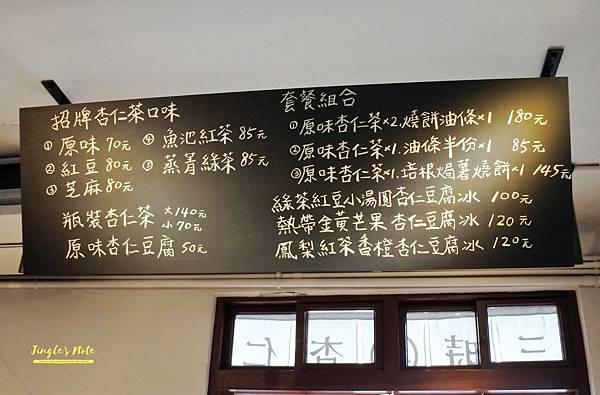 招牌杏仁茶口味
①原味70元 ④魚池紅茶85元
②紅豆80元 ⑤蒸菁綠茶85元
③芝麻80元
瓶裝杏仁茶 大140元 小70元
原味杏仁豆腐50元
套餐組合
①原味杏仁茶×2.燒餅油條×1 180元
②原味杏仁茶×1.油條半份×1 85元
③原味杏仁茶×1.培根焗薯燒餅×1 145元
綠茶紅豆小湯圓杏仁豆腐冰 100元
熱帶金黃芒果杏仁豆腐冰 120元
鳳梨紅茶香橙杏仁豆腐冰 120元
三時○杏仁
Jingle's Note